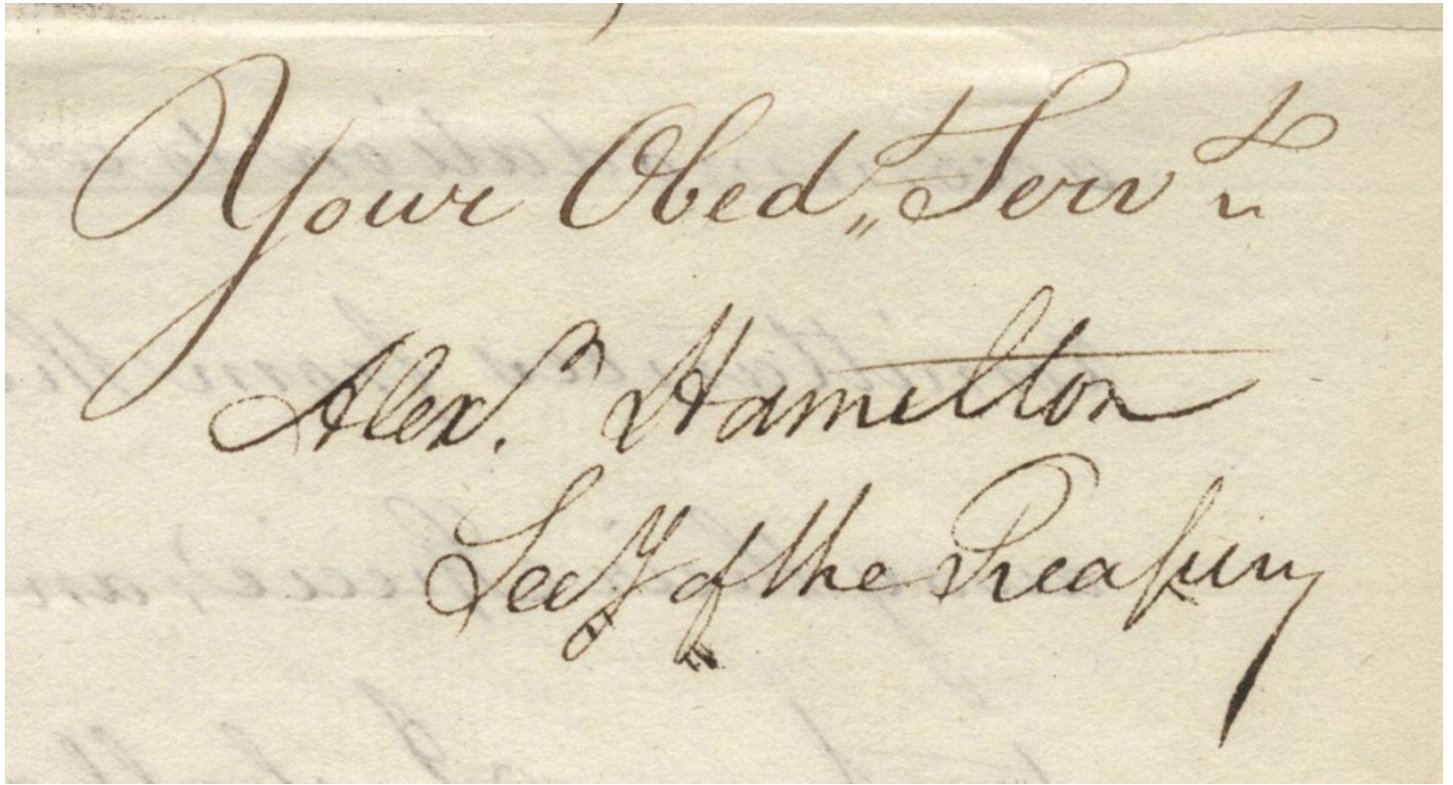 Your Obed,, Servt
Alexr. Hamilton
Secy of the Treasury